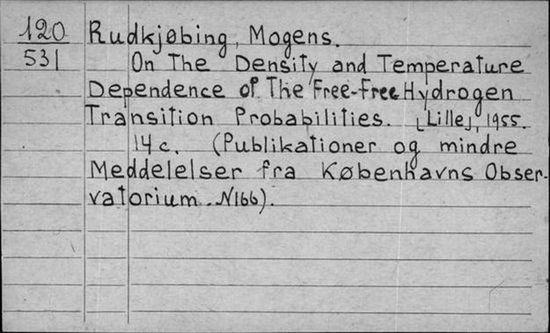 120 Rudkjøbing, Mogens.
531 On The Density and Temperature
Dependence of The Free-Free Hydrogen
Transition Probabilities. [Lille], 1955.
14 c. (Publikationer og mindre
Meddelelser fra Københavns Obser-
vatorium. N166).